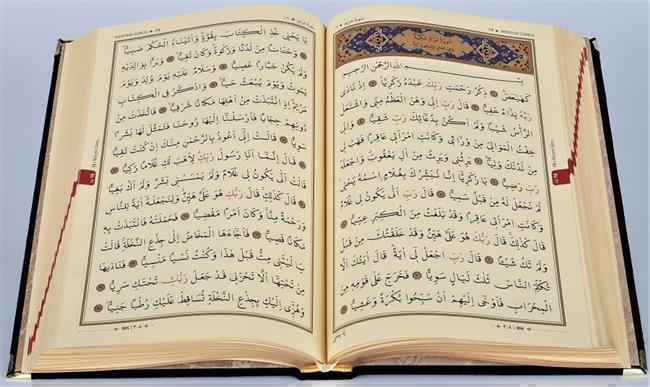 سورة مريم
MERYEM SURESİ
بِسْمِ اللّٰهِ الرَّحْمٰنِ الرَّحِيمِ
كٓهٰيٰعٓصٓ ذِكْرُ رَحْمَتِ رَبِّكَ عَبْدَهُ زَكَرِيَّا اِذْ نَادٰى
رَبَّهُ نِدَٓاءً خَفِيًّا قَالَ رَبِّ اِنّٖي وَهَنَ الْعَظْمُ مِنّٖي وَاشْتَعَلَ
الرَّأْسُ شَيْبًا وَلَمْ اَكُنْ بِدُعَٓائِكَ رَبِّ شَقِيًّا وَاِنّٖي
خِفْتُ الْمَوَالِيَ مِنْ وَرَٓائٖي وَكَانَتِ امْرَاَتٖي عَاقِرًا فَهَبْ لٖي
مِنْ لَدُنْكَ وَلِيًّا يَرِثُنٖي وَيَرِثُ مِنْ اٰلِ يَعْقُوبَ وَاجْعَلْهُ
رَبِّ رَضِيًّا يَا زَكَرِيَّٓا اِنَّا نُبَشِّرُكَ بِغُلَامٍ اسْمُهُ يَحْيٰى
لَمْ نَجْعَلْ لَهُ مِنْ قَبْلُ سَمِيًّا قَالَ رَبِّ اَنّٰى يَكُونُ لٖي غُلَامٌ
وَكَانَتِ امْرَاَتٖي عَاقِرًا وَقَدْ بَلَغْتُ مِنَ الْكِبَرِ عِتِيًّا
قَالَ كَذٰلِكَ قَالَ رَبُّكَ هُوَ عَلَيَّ هَيِّنٌ وَقَدْ خَلَقْتُكَ مِنْ قَبْلُ
وَلَمْ تَكُ شَيْـًٔا قَالَ رَبِّ اجْعَلْ لٖٓي اٰيَةً قَالَ اٰيَتُكَ اَلَّا
تُكَلِّمَ النَّاسَ ثَلٰثَ لَيَالٍ سَوِيًّا فَخَرَجَ عَلٰى قَوْمِهٖ مِنَ
الْمِحْرَابِ فَاَوْحٰٓى اِلَيْهِمْ اَنْ سَبِّحُوا بُكْرَةً وَعَشِيًّا
٣٠٤ 304
MERYEM SURESİ
سورة مريم
يَا يَحْيٰى خُذِ الْكِتَابَ بِقُوَّةٍ وَاٰتَيْنَاهُ الْحُكْمَ صَبِيًّا
وَحَنَانًا مِنْ لَدُنَّا وَزَكٰوةً وَكَانَ تَقِيًّا وَبَرًّا بِوَالِدَيْهِ
وَلَمْ يَكُنْ جَبَّارًا عَصِيًّا وَسَلَامٌ عَلَيْهِ يَوْمَ وُلِدَ وَيَوْمَ
يَمُوتُ وَيَوْمَ يُبْعَثُ حَيًّا وَاذْكُرْ فِي الْكِتَابِ
مَرْيَمَ اِذِ انْتَبَذَتْ مِنْ اَهْلِهَا مَكَانًا شَرْقِيًّا فَاتَّخَذَتْ مِنْ
دُونِهِمْ حِجَابًا فَاَرْسَلْنَٓا اِلَيْهَا رُوحَنَا فَتَمَثَّلَ لَهَا بَشَرًا
سَوِيًّا قَالَتْ اِنّٖٓي اَعُوذُ بِالرَّحْمٰنِ مِنْكَ اِنْ كُنْتَ تَقِيًّا
قَالَ اِنَّمَٓا اَنَا رَسُولُ رَبِّكِ لِاَهَبَ لَكِ غُلَامًا زَكِيًّا
قَالَتْ اَنّٰى يَكُونُ لٖي غُلَامٌ وَلَمْ يَمْسَسْنٖي بَشَرٌ وَلَمْ اَكُ بَغِيًّا
قَالَ كَذٰلِكِ قَالَ رَبُّكِ هُوَ عَلَيَّ هَيِّنٌ وَلِنَجْعَلَهُٓ اٰيَةً لِلنَّاسِ
وَرَحْمَةً مِنَّا وَكَانَ اَمْرًا مَقْضِيًّا فَحَمَلَتْهُ فَانْتَبَذَتْ بِهٖ
مَكَانًا قَصِيًّا فَاَجَٓاءَهَا الْمَخَاضُ اِلٰى جِذْعِ النَّخْلَةِ قَالَتْ
يَا لَيْتَنٖي مِتُّ قَبْلَ هٰذَا وَكُنْتُ نَسْيًا مَنْسِيًّا فَنَادٰيهَا
مِنْ تَحْتِهَٓا اَلَّا تَحْزَنٖي قَدْ جَعَلَ رَبُّكِ تَحْتَكِ سَرِيًّا
وَهُزّٖٓي اِلَيْكِ بِجِذْعِ النَّخْلَةِ تُسَاقِطْ عَلَيْكِ رُطَبًا جَنِيًّا
305 ٣٠٥